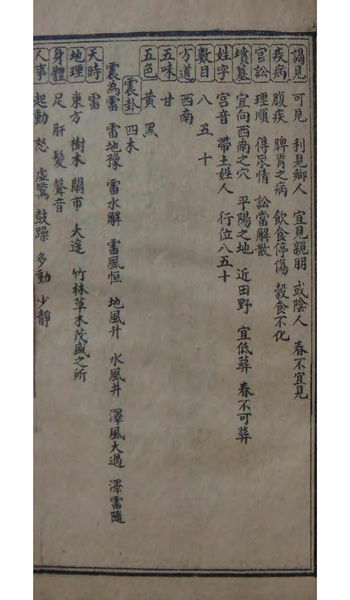 謁見 可見 利見鄉人 宜見親朋 或陰人 春不宜見
疾病 腹疾 脾胃之病 飲食停傷 穀食不化
官訟 理順 得衆情 訟當解散
墳墓 宜向西南之穴 平陽之地 近田野 宜低葬 春不可葬
姓字 宮音 帶土姓人 行位八五十
數目 八 五 十
方道 西南
五味 甘
五色 黃 黑
震卦 四木
震為雷 雷地豫 雷水解 雷風恒 地風升 水風井 澤風大過 澤雷隨
天時 雷
地理 東方 樹木 鬧市 大途 竹林草木茂盛之所
身體 足 肝 髮 聲音
人事 起動 怒 虛驚 鼓躁 多動 少靜